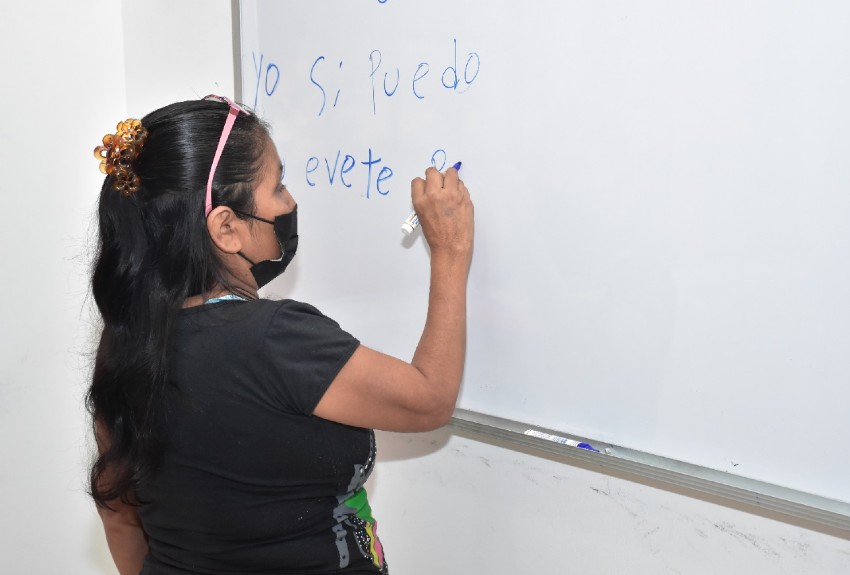 yo Si Puedo
evete